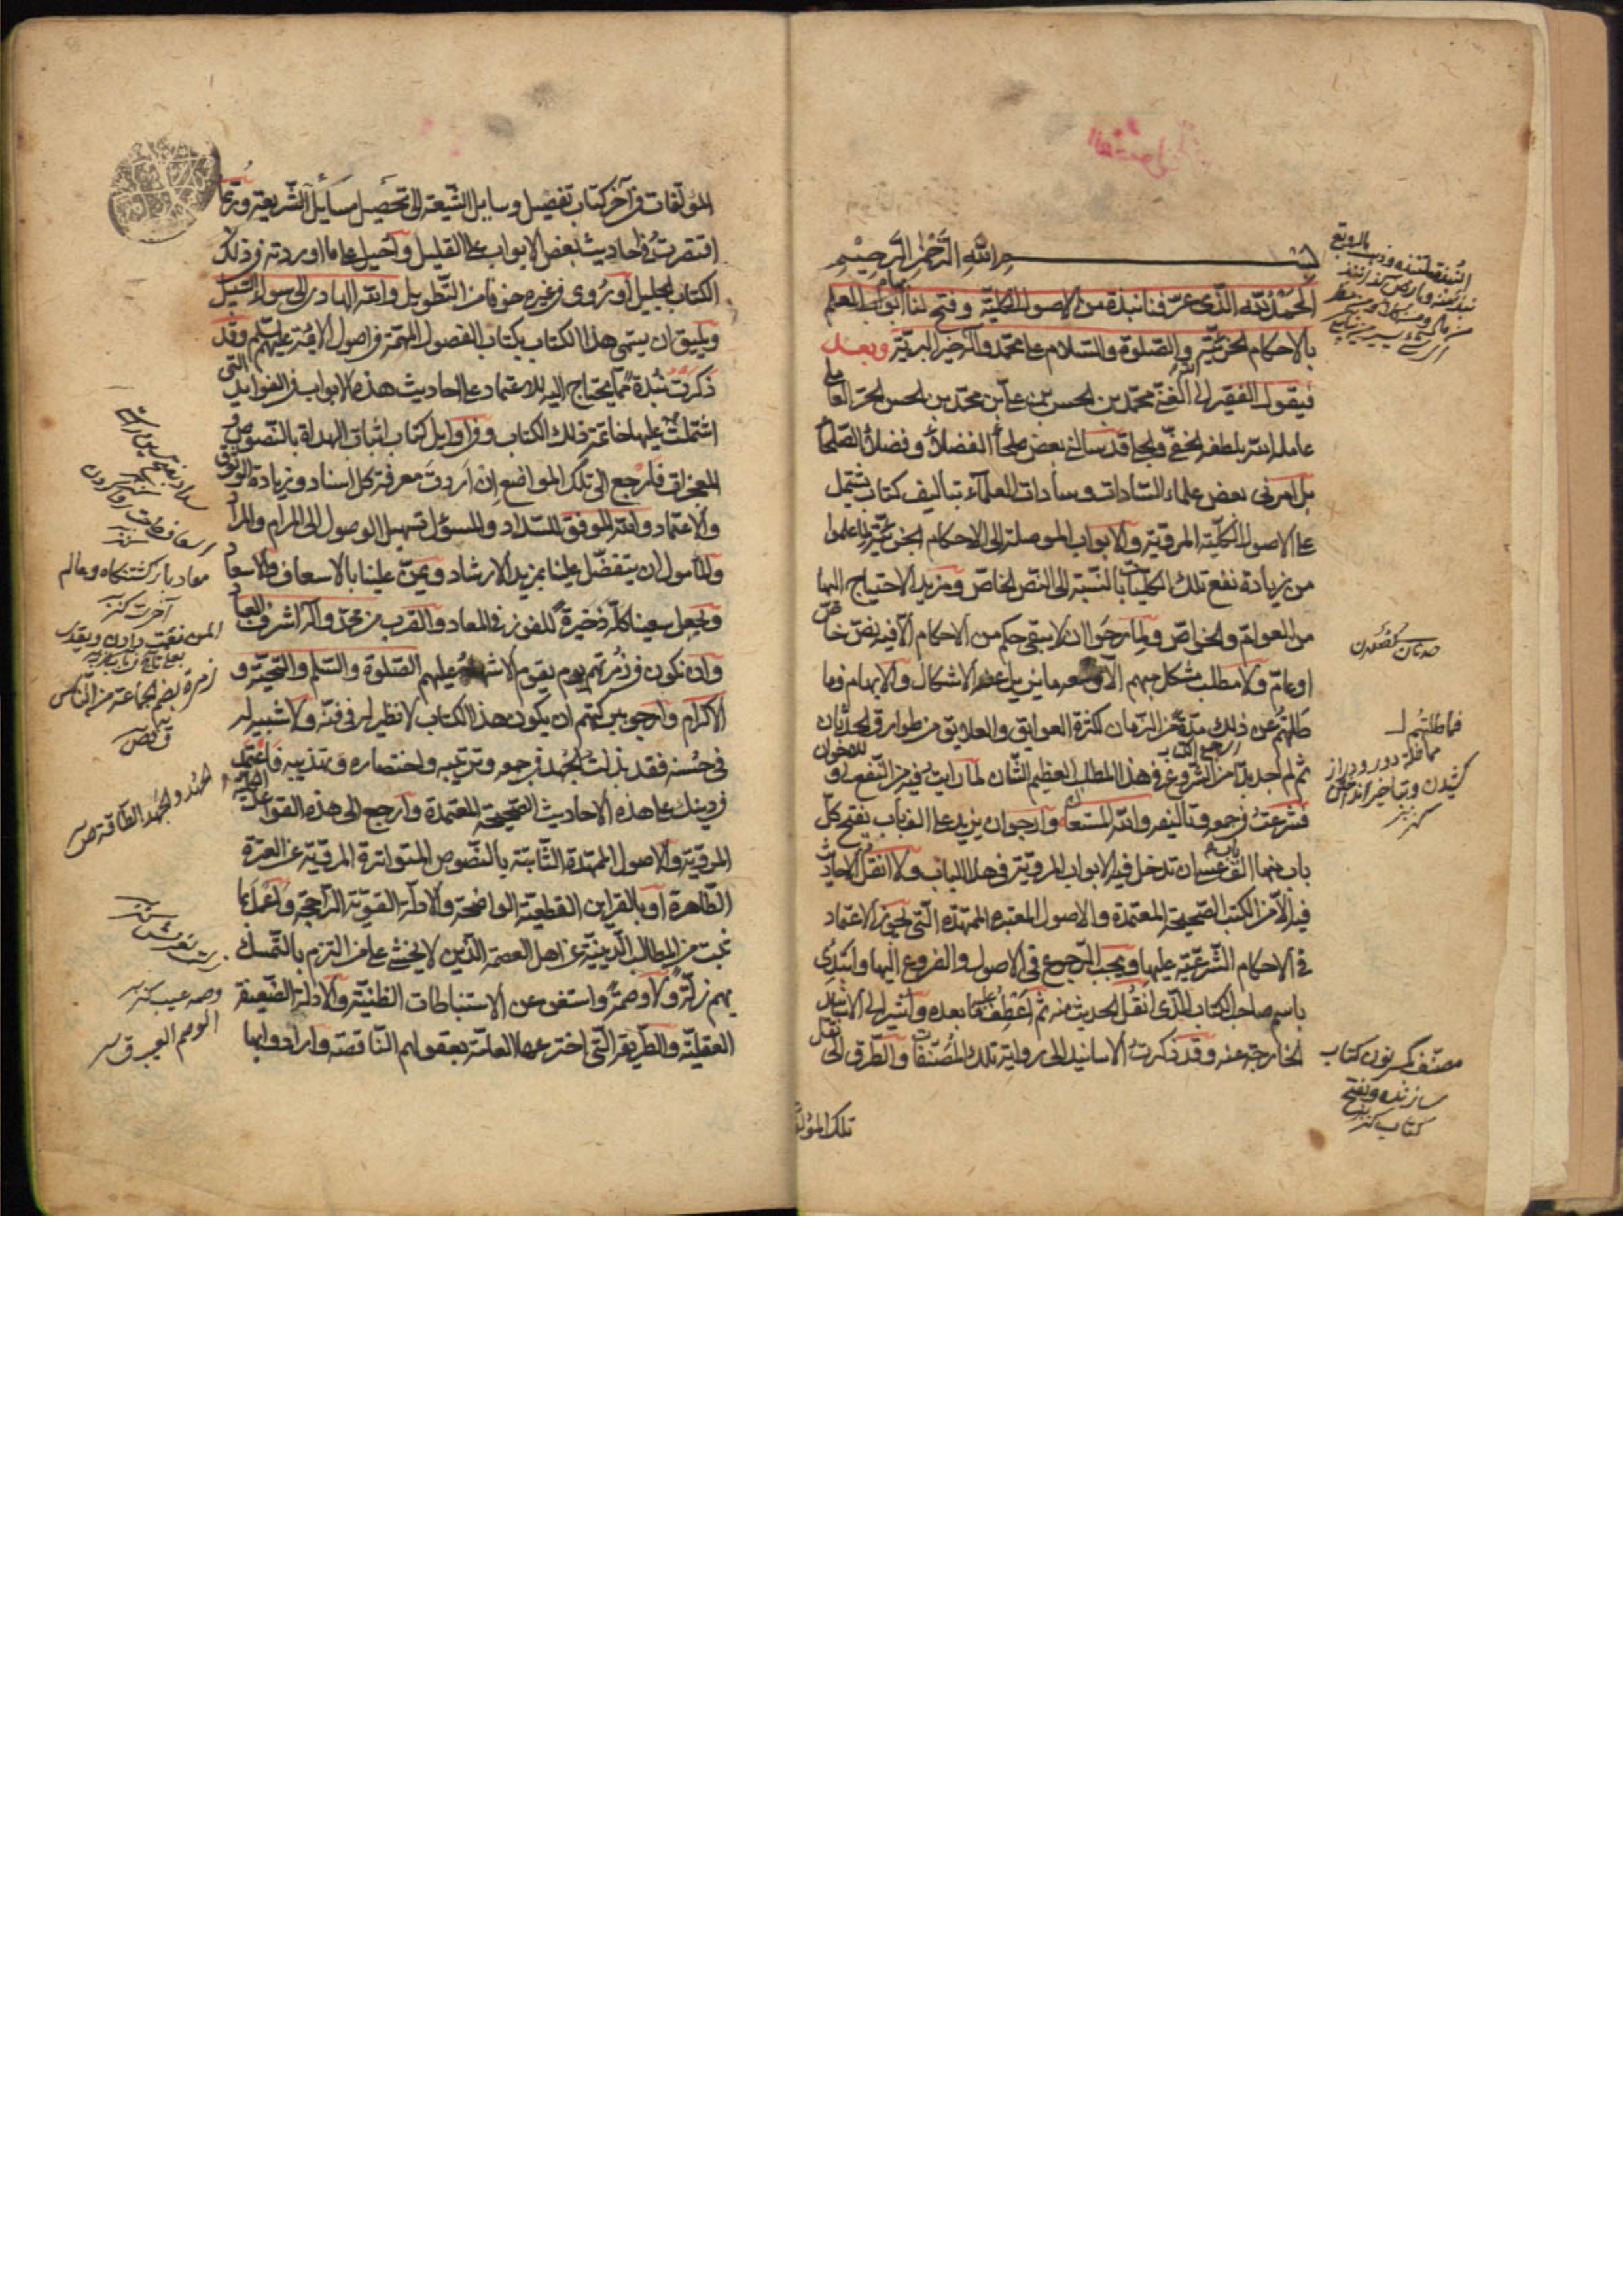 بسم الله الرحمن الرحيم
الحمد لله الذى عرفنا نبذة من الاصول الكلية وفتح لنا ابواب العلم
بالاحكام الجزئية والصلوة والسلام على محمد وآله خير البرية وبعد
فيقول الفقير الى الله الغنى محمد بن الحسن بن على بن محمد بن الحسن الحر العاملى
عامله الله بلطفه الخفى والجلى قد سالنى بعض صلحاء الفضلاء وفضلاء الصلحاء
بل امرنى بعض علماء السادات وسادات العلماء بتاليف كتاب يشتمل
على الاصول الكلية المروية والابواب الموصلة الى الاحكام الجزئية لما علموا
من زيادة نفع تلك الكليات بالنسبة الى النص الخاص ومزيد الاحتياج اليها
من العوام والخواص ولما رجوا ان لا يبقى حكم من الاحكام الا فيه نص خاص
او عام ولا مطلب مشكل مبهم الا ومعه ما يزيل عنه الاشكال والابهام فما
طلتهم عن ذلك مدة من الزمان لكثرة العوايق والعلايق من طوارق الحدثان
ثم لم اجد بدا من الشروع فى هذا المطلب العظيم الشان لما رايت فيه من النفع لى و للاخوان
فشرعت فى جمعه وتاليفه والله المستعان وارجو ان يزيد على الف باب يفتح كل
باب منها الف باب عسى ان تدخل فيه الابواب المروية فى هذا الباب ولا انقل الاحاديث
فيه الا من الكتب الصحيحة المعتمدة والاصول المعتبرة الممهدة التى يجوز الاعتماد
فى الاحكام الشرعية عليها ويجب الرجوع فى الاصول والفروع اليها وابتدى
باسم صاحب الكتاب الذى انقل الحديث منه ثم اعطف عليه ما بعده واشير الى الاسانيد
الخارجة عنه وقد ذكرت الاسانيد الى رواية تلك المصنفات والطرق الى نقل
تلك المؤلفات
صدثان
فماطلتهم
مماطلة دور و دراز
كشيدن و بتاخير انداختن
كنز
مصنف بكسر نون كتاب
سازنده و بفتح
كتاب كنز
المؤلفات فى آخر كتاب تفصيل وسايل الشيعة الى تحصيل مسايل الشريعة وربما
اقتصرت فى احاديث بعض الابواب على القليل واحيل على ما اوردته فى ذلك
الكتاب الجليل او روى فى غيره خوفا من التطويل والله الهادى الى سواء السبيل
ويليق ان يسمى هذا الكتاب بكتاب الفصول المهمة فى اصول الائمة عليهم السلم وقد
ذكرت نبذة مما يحتاج اليه للاعتماد على احاديث هذه الابواب فى الفوايد التى
اشتملت عليها خاتمة ذلك الكتاب وفى اوايل كتاب اثبات الهداة بالنصوص و
المعجزات فارجع الى تلك المواضع ان اردت معرفة كل اسناد وزيادة الوثوق
والاعتماد والله الموفق للسداد والمسؤل تسهيل الوصول الى المرام والمراد
والمامول ان يتفضل علينا بمزيد الارشاد ويمن علينا بالاسعاف والاسعاد
ويجعل سعينا كله ذخيرة للفوز فى المعاد والقرب من محمد وآله اشرف العباد
وان نكون فى زمرتهم يوم يقوم الاشهاد عليهم الصلوة والسلم والتحية و
الاكرام وارجو ببركتهم ان يكون هذا الكتاب لا نظير له فى فنه ولا شبيه له
فى حسنه فقد بذلت الجهد فى جمعه وترتيبه واختصاره وتهذيبه فاعتمد
فى دينك على هذه الاحاديث الصحيحة المعتمدة وارجع الى هذه القواعد الكلية
المروية والاصول الممهدة الثابتة بالنصوص المتواترة المروية عن العترة
الطاهرة او بالقراين القطعية الواضحة والادلة القوية الراجحة واعمل بما
ثبت من المطالب الدينية عن اهل العصمة الذين لا يخشى على من التزم بالتمسك
بهم زلة ولا وصمة واستغن عن الاستنباطات الظنية والادلة الضعيفة
العقلية والطريقة التى اخترعها العامة بعقولهم الناقصة وارادوا بها
معاد باز كشتنگاه و عالم
آخرت كنز
المن نعمت دادن
زمرة بضم الجماعة من الناس
جهد والجهد الطاقة ص
وصمه عيب كنز
الوصم العيب ق